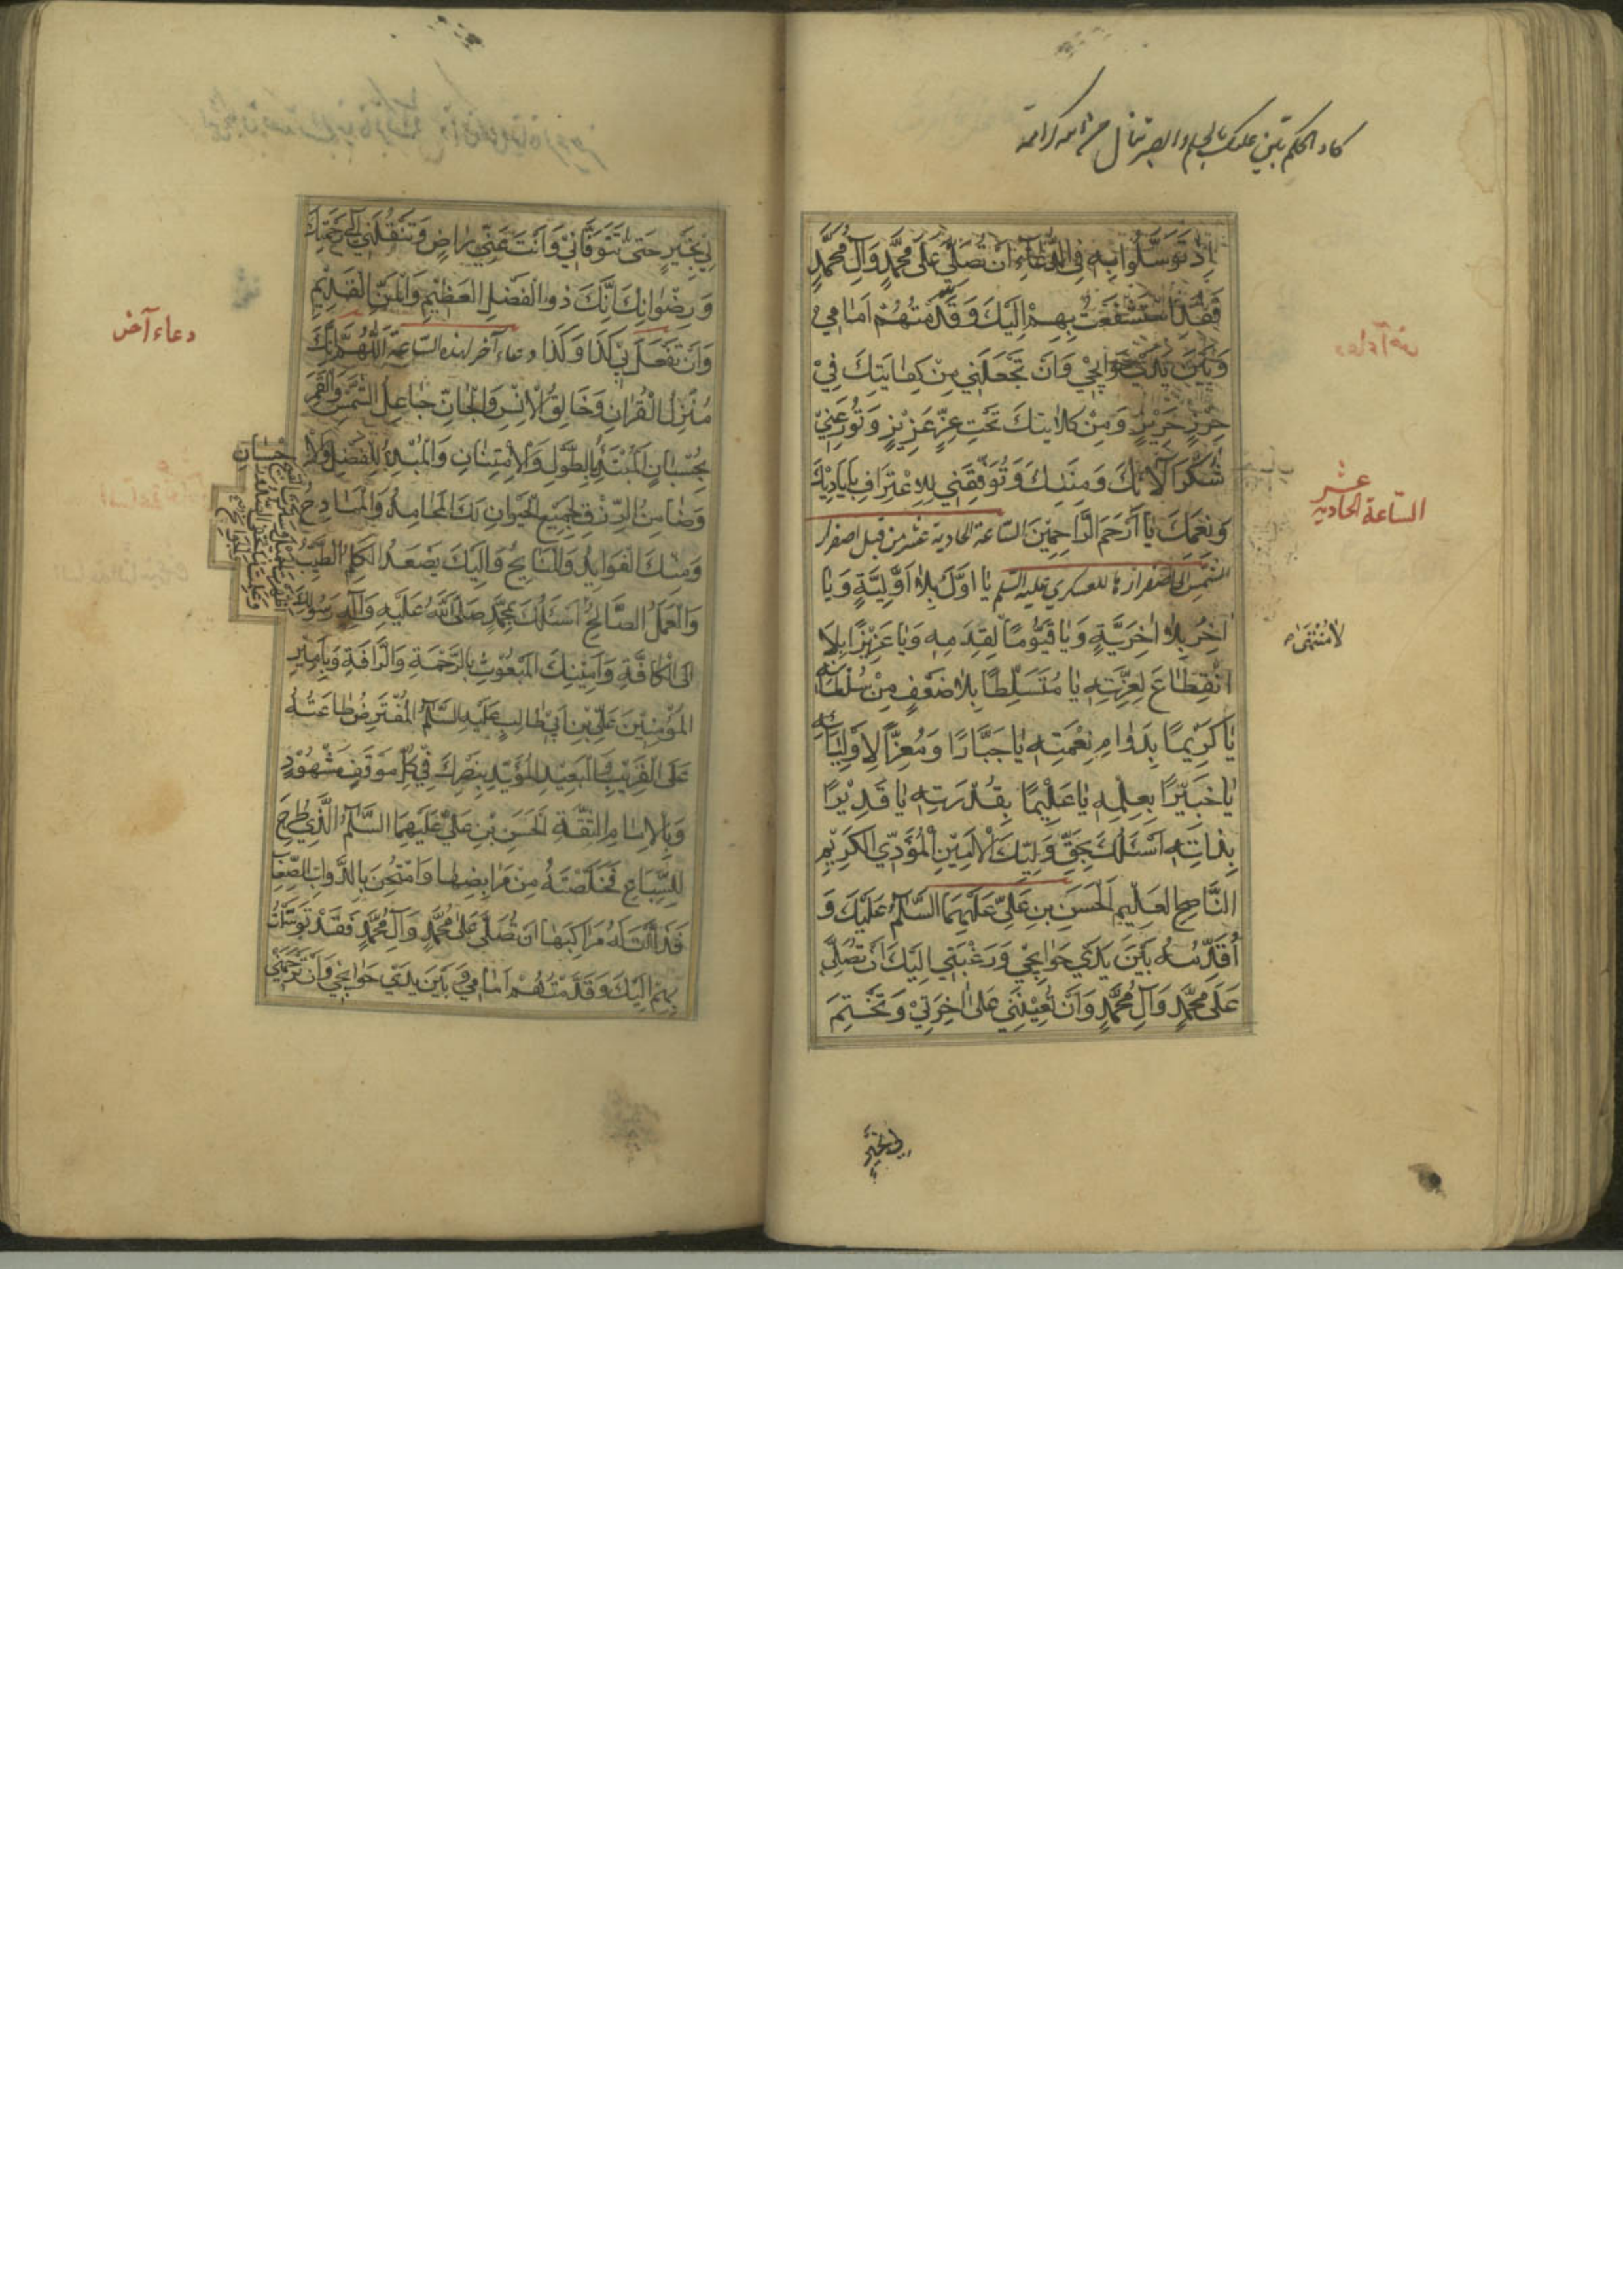 اِذْ تَوَسَّلُوا بِهِ فِي الدُّعَاءِ اَنْ تُصَلِّيَ عَلَى مُحَمَّدٍ وَآلِ مُحَمَّدٍ
فَقَدِ اسْتَشْفَعْتُ بِهِمْ اِلَيْكَ وَقَدَّمْتُهُمْ اَمَامِي
وَبَيْنَ يَدَيْ حَوَائِجِي وَاَنْ تَجْعَلَنِي مِنْ كِفَايَتِكَ فِي
حِرْزٍ حَرِيْزٍ وَمِنْ كَلَايَتِكَ تَحْتَ عِزٍّ عَزِيْزٍ وَتُوْزِعَنِيْ
شُكْرَ آلَائِكَ وَمِنَنِكَ وَتُوَفِّقَنِي لِلِاعْتِرَافِ بِاَيَادِيْكَ
وَنِعَمِكَ يَا اَرْحَمَ الرَّاحِمِيْنَ السّاعة الحادية عشر من قبل اصفرار
الشمس الى اصفرارها للعسكري عليه السلم يَا اَوَّلُ بِلَا اَوَّلِيَّةٍ وَيَا
اٰخِرُ بِلَا اٰخِرِيَّةٍ وَيَا قَيُّوْمًا لِقِدَمِهِ وَيَا عَزِيْزًا بِلَا
لَا مُنْتَهٰى
انْقِطَاعَ لِعِزَّتِهِ يَا مُتَسَلِّطًا بِلَا ضَعْفٍ مِنْ سُلْطَانِهِ
يَا كَرِيْمًا بِدَوَامِ نِعْمَتِهِ يَا جَبَّارًا وَمُعِزًّا لِاَوْلِيَائِهِ
يَا خَبِيْرًا بِعِلْمِهِ يَا عَلِيْمًا بِقُدْرَتِهِ يَا قَدِيْرًا
بِذَاتِهِ اَسْئَلُكَ بِحَقِّ وَلِيِّكَ الْاَمِيْنِ الْمُؤَدِّي الْكَرِيْمِ
النَّاصِحِ الْعَلِيْمِ الْحَسَنِ بْنِ عَلِيٍّ عَلَيْهِمَا السَّلَمُ عَلَيْكَ وَ
اُقَدِّسُهُ بَيْنَ يَدَيْ حَوَائِجِي وَرَغْبَتِي اِلَيْكَ اَنْ تُصَلِّيَ
عَلَى مُحَمَّدٍ وَآلِ مُحَمَّدٍ وَاَنْ تُعِيْنَنِي عَلَى اٰخِرَتِيْ وَتَخْتِمَ
لي بخير
عشر
السّاعة الحادية
لِيْ بِخَيْرٍ حَتّٰى تَتَوَفَّانِيْ وَاَنْتَ عَنِّي رَاضٍ وَتَنْقُلَنِي اِلَى رَحْمَتِكَ
وَرِضْوَانِكَ اِنَّكَ ذُو الْفَضْلِ الْعَظِيْمِ وَالْمَنِّ الْقَدِيْمِ
وَاَنْ تَفْعَلَ بِيْ كَذَا وَكَذَا دعاء آخر لهذه السّاعة اَللّٰهُمَّ اِنَّكَ
مُنْزِلُ الْقُرْاٰنِ وَخَالِقُ الْاِنْسِ وَالْجَانِّ جَاعِلُ الشَّمْسِ وَالْقَمَرِ
بِحُسْبَانٍ الْمُبْتَدِئُ بِالطَّوْلِ وَالْاِمْتِنَانِ وَالْمُبْدِئُ لِلْفَضْلِ وَالْا
وَضَامِنُ الرِّزْقِ لِجَمِيْعِ الْحَيْوَانِ لَكَ الْمَحَامِدُ وَالْمَمَادِحُ
وَمِنْكَ الْفَوَائِدُ وَالْمَنَائِحُ وَاِلَيْكَ يَصْعَدُ الْكَلِمُ الطَّيِّبُ
وَالْعَمَلُ الصَّالِحُ اَسْئَلُكَ بِمُحَمَّدٍ صَلَّى اللّٰهُ عَلَيْهِ وَآلِهِ رَسُوْلِكَ
اِلَى الْكَافَّةِ وَاَمِيْنِكَ الْمَبْعُوْثِ بِالرَّحْمَةِ وَالرَّافَةِ وَبِاَمِيْرِ
الْمُؤْمِنِيْنَ عَلِيِّ بْنِ اَبِيْ طَالِبٍ عَلَيْهِ السَّلَمُ الْمُفْتَرَضِ طَاعَتُهُ
عَلَى الْقَرِيْبِ وَالْبَعِيْدِ الْمُؤَيَّدِ بِنَصْرِكَ فِيْ كُلِّ مَوْقِفٍ مَشْهُوْدٍ
وَبِالْاِمَامِ الثِّقَةِ الْحَسَنِ بْنِ عَلِيٍّ عَلَيْهِمَا السَّلَمُ الَّذِيْ طُرِحَ
لِلسِّبَاعِ فَخَلَّصْتَهُ مِنْ مَرَابِضِهَا وَامْتُحِنَ بِالدَّوَابِّ الصِّعَابِ
فَذَلَّلْتَ لَهُ مَرَاكِبَهَا اَنْ تُصَلِّيَ عَلَى مُحَمَّدٍ وَآلِ مُحَمَّدٍ فَقَدْ تَوَسَّلْتُ
بِهِمْ اِلَيْكَ وَقَدَّمْتُهُمْ اَمَامِي وَبَيْنَ يَدَيْ حَوَائِجِي وَاَنْ تَرْحَمَنِي
دعاء آخر